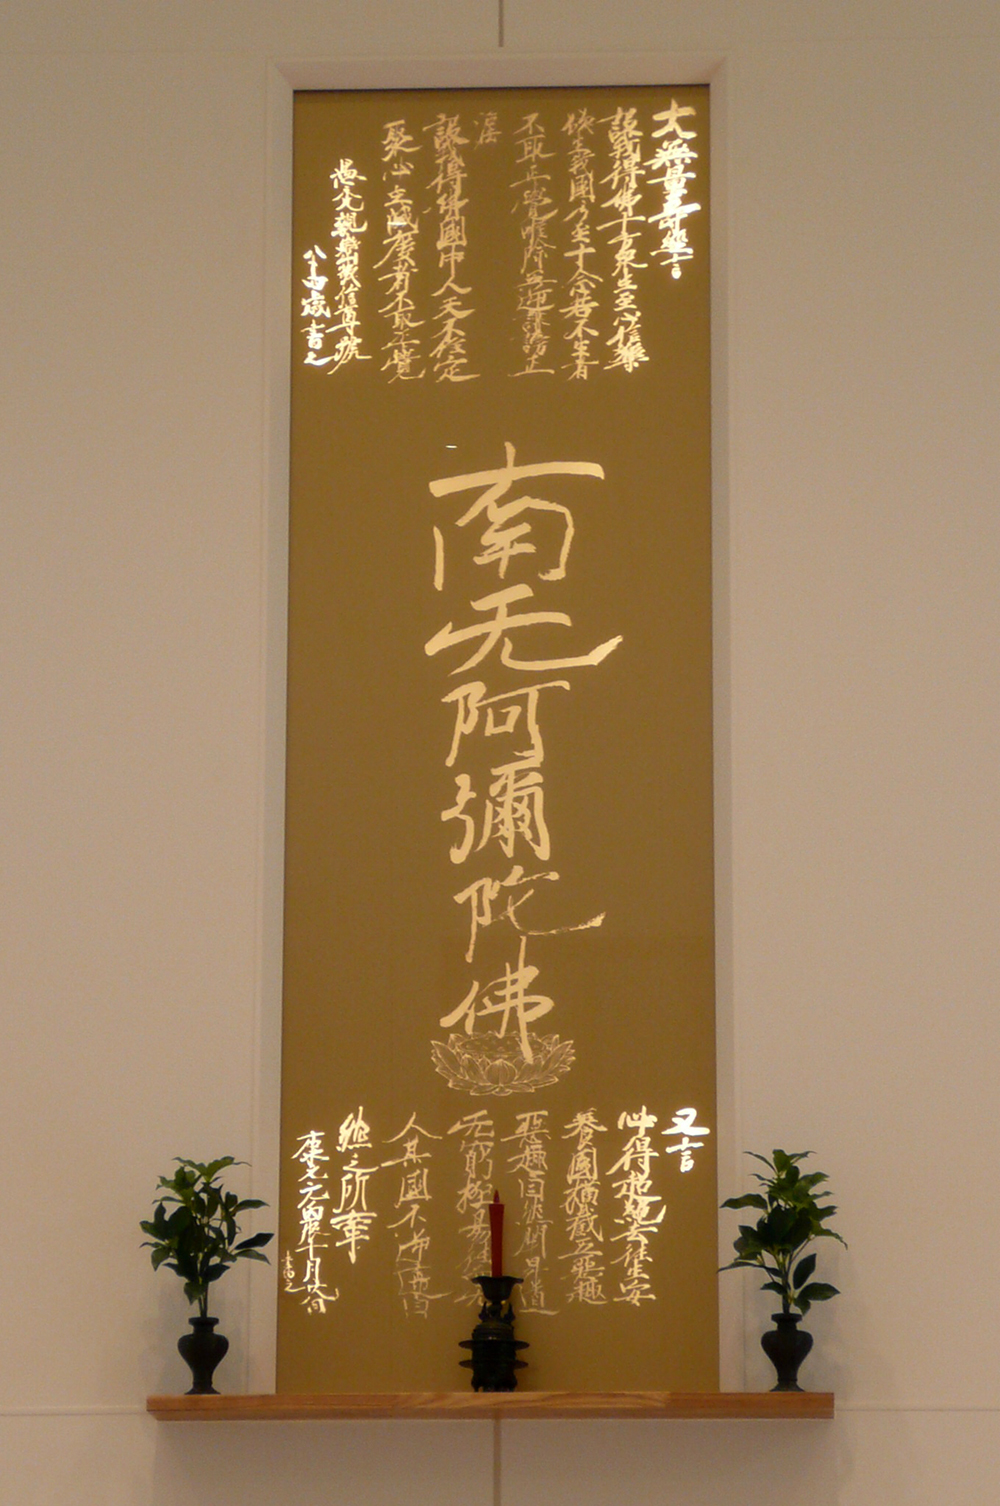 大無量壽經言
設我得佛十方衆生至心信樂
欲生我國乃至十念若不生者
不取正覺唯除五逆誹謗正
法
設我得佛國中人天不住定
聚必至滅度者不取正覺
愚禿親鸞敬信尊號
八十四歳書之
南无阿彌陀佛
又言
必得超絶去往生安
養國橫截五惡趣
惡趣自然閉昇道
无窮極易往无
人其國不逆違自
然之所牽
康元元丙辰十月廿八日
書之